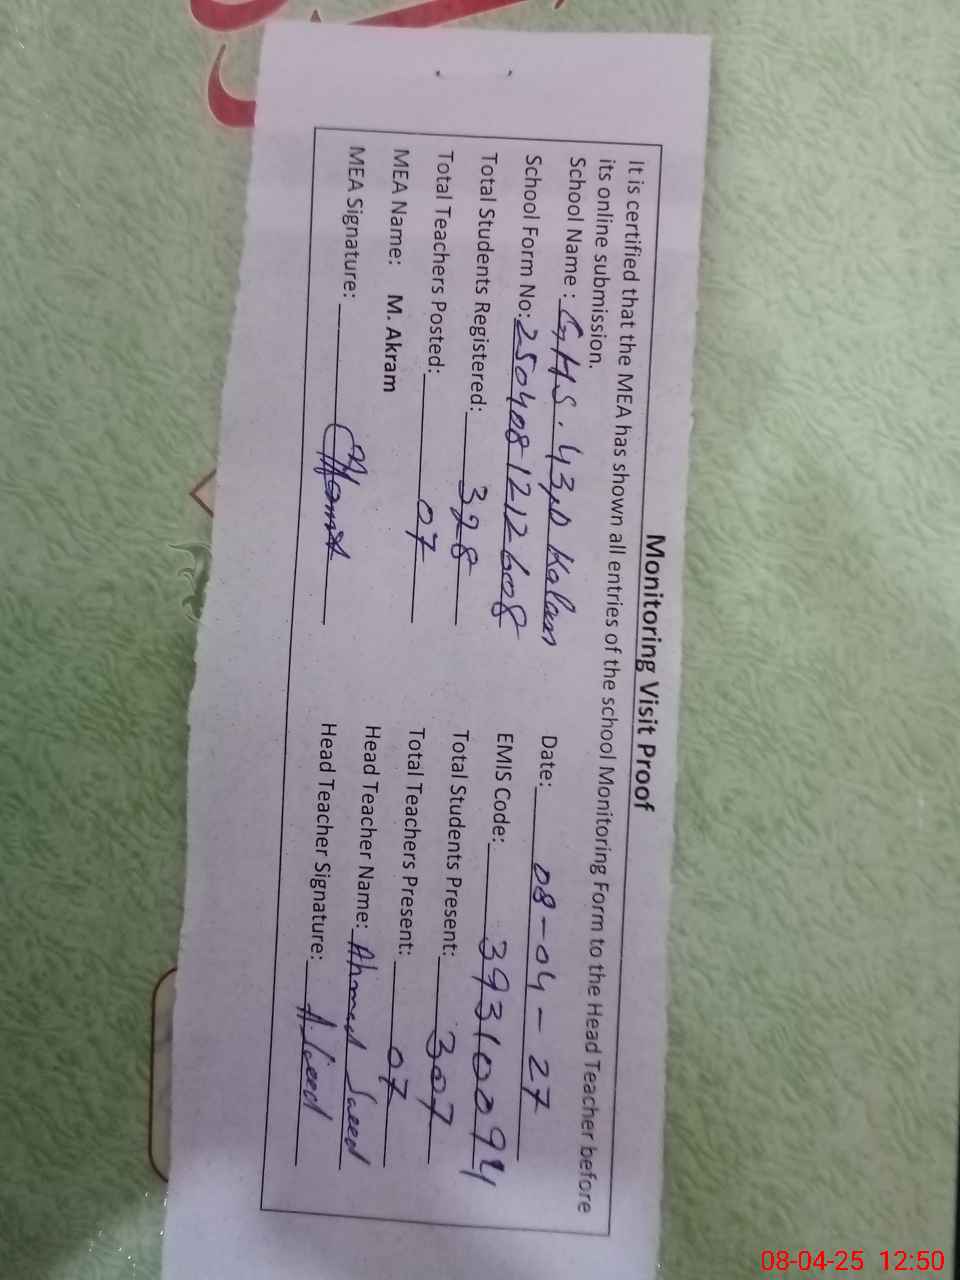 Monitoring Visit Proof
It is certified that the MEA has shown all entries of the school Monitoring Form to the Head Teacher before
its online submission.
School Name : GHS. 43/D Kalan Date: 08-04-27
School Form No: 2504081212608 EMIS Code: 39310094
Total Students Registered: 398 Total Students Present: 307
Total Teachers Posted: 07 Total Teachers Present: 07
MEA Name: M. Akram Head Teacher Name: Ahmed Saeed
MEA Signature: Head Teacher Signature: A. Saeed
08-04-25 12:50